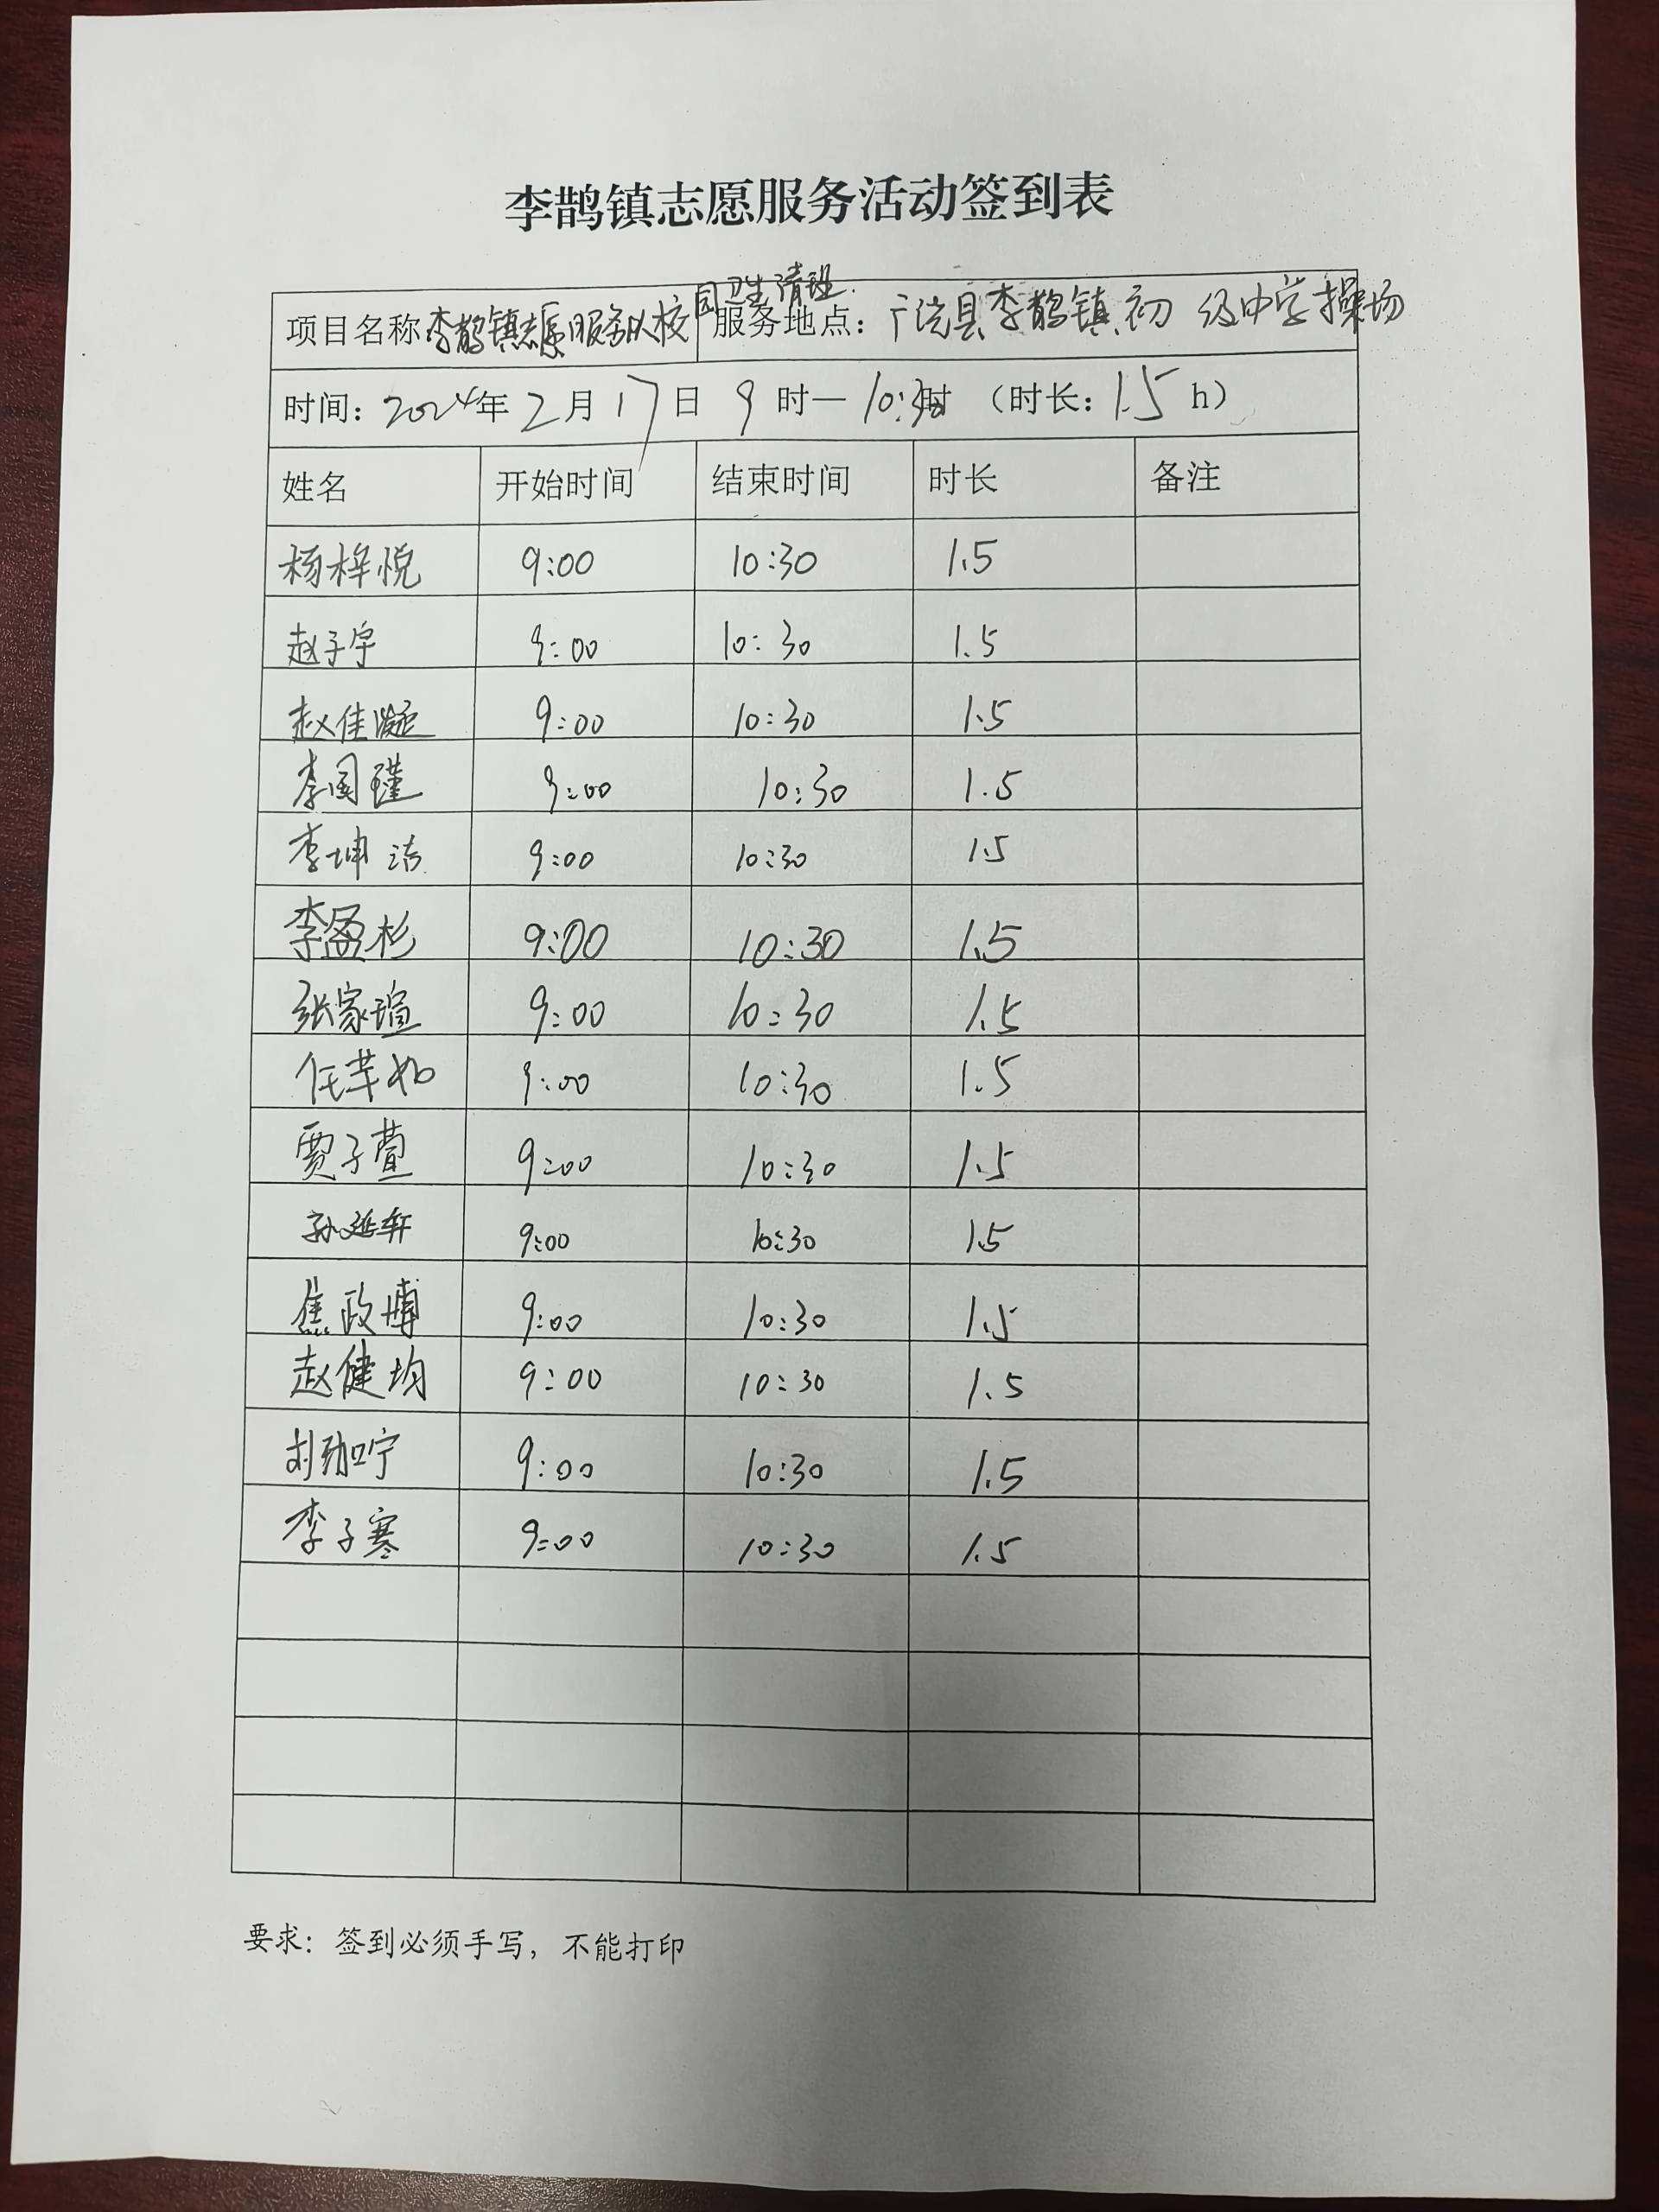 李鹊镇志愿服务活动签到表
项目名称李鹊镇志愿服务队校园卫生清理 服务地点：广饶县李鹊镇初级中学操场
时间：2024年2月17日 9时—10:30时（时长：1.5h）
姓名 开始时间 结束时间 时长 备注
杨梓悦 9:00 10:30 1.5
赵子宇 9:00 10:30 1.5
赵佳凝 9:00 10:30 1.5
李国瑾 9:00 10:30 1.5
李坤洁 9:00 10:30 1.5
李盈杉 9:00 10:30 1.5
张家瑄 9:00 10:30 1.5
任芊如 9:00 10:30 1.5
贾子萱 9:00 10:30 1.5
孙延轩 9:00 10:30 1.5
焦政博 9:00 10:30 1.5
赵健均 9:00 10:30 1.5
刘 9:00 10:30 1.5
李子寒 9:00 10:30 1.5
要求：签到必须手写，不能打印